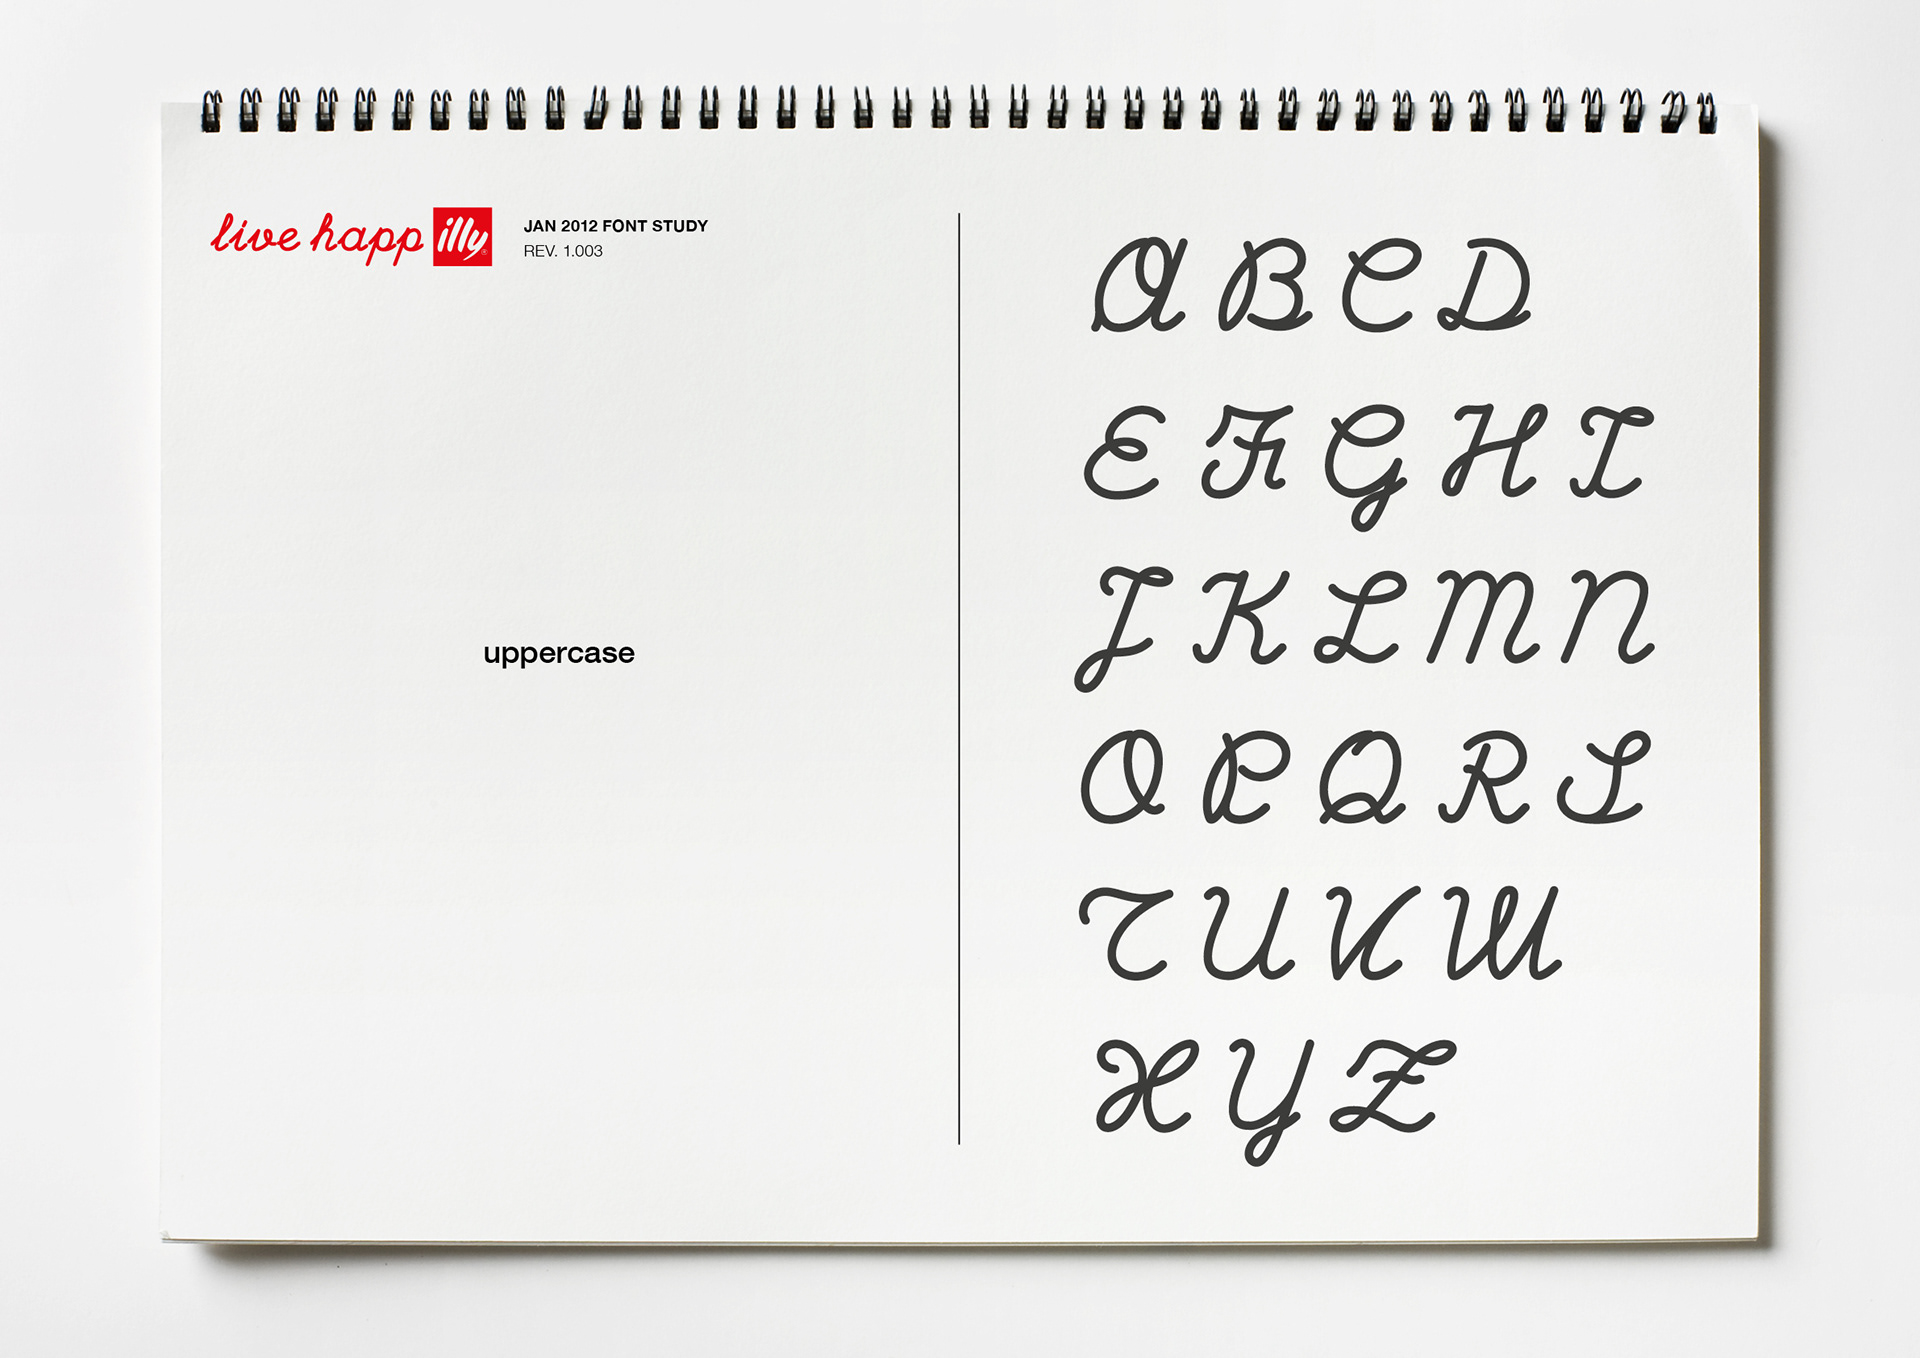 live happilly
JAN 2012 FONT STUDY
REV. 1.003
uppercase
A B C D
E F G H I
J K L M N
O P Q R S
T U V W
X Y Z